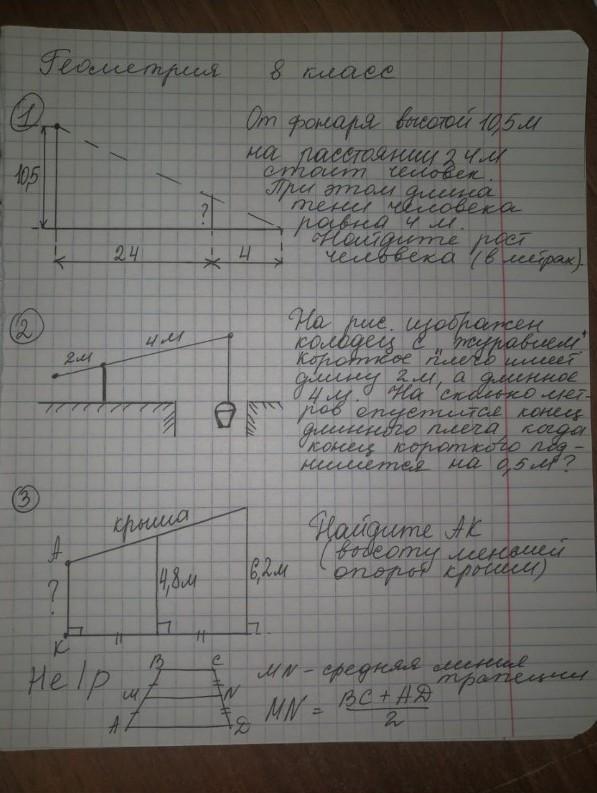 Геометрия 8 класс
1
От фонаря высотой 10,5 м
на расстоянии 24 м
стоит человек.
При этом длина
тени человека
равна 4 м.
Найдите рост
человека (в метрах).
10,5
?
24
4
2
На рис. изображен
колодец с "журавлем"
короткое плечо имеет
длину 2 м, а длинное
4 м. На сколько мет-
ров опустится конец
длинного плеча, когда
конец короткого под-
нимется на 0,5 м?
2 м
4 м
3
крыша
A
?
4,8 м
6,2 м
K
Найдите AK
(высоту меньшей
опоры крыши)
Help
B C
M N
A D
MN - средняя линия
трапеции
MN = BC + AD / 2